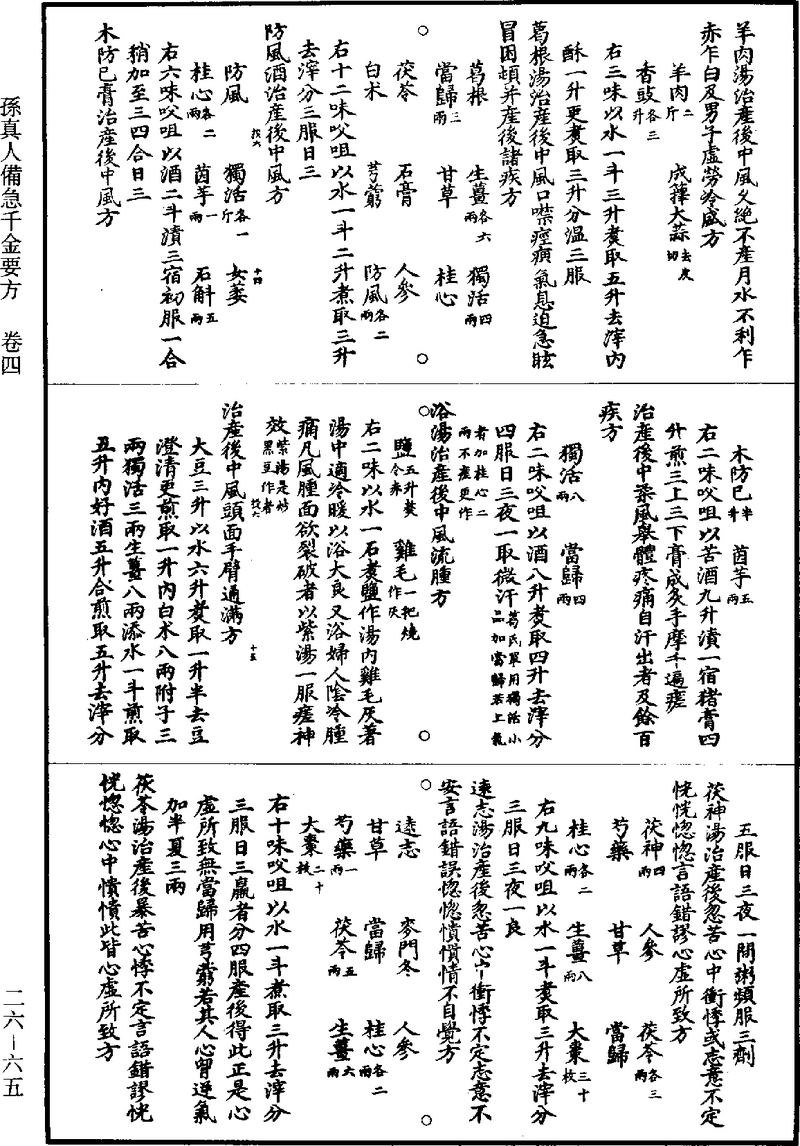 羊肉湯治產後中風乆絶不產月水不利乍
赤乍白及男子虛勞冷盛方
羊肉二斤 成擇大蒜去皮切
香豉各三升
右三味以水一斗三升煑取五升去滓内
酥一升更煑取三升分溫三服
葛根湯治產後中風口噤痙痹氣息迫急眩
冒困頓并產後諸疾方
葛根 生薑各六兩 獨活四兩
當歸三兩 甘草 桂心
茯苓 石膏 人參
白术 芎藭 防風各二兩
右十二味㕮咀以水一斗二升煮取三升
去滓分三服日三
防風酒治產後中風方
防風 獨活各一斤 女萎
桂心各二兩 茵芋一兩 石斛五兩
右六味㕮咀以酒二斗漬三宿初服一合
稍加至三四合日三
木防己膏治產後中風方
木防己半升 茵芋五兩
右二味㕮咀以苦酒九升漬一宿猪膏四
升煎三上三下膏成炙手摩千遍瘥
治產後中柔風舉體疼痛自汗出者及餘百
疾方
獨活八兩 當歸四兩
右二味㕮咀以酒八升煑取四升去滓分
四服日三夜一取微汗葛氏單用獨活小品加當歸若上氣
者加桂心二兩不瘥更作
浴湯治產後中風流腫方
鹽五升熬令赤 雞毛一把燒作灰
右二味以水一石煑鹽作湯内雞毛灰著
湯中適冷暖以浴大良又浴婦人陰冷腫
痛凡風腫面欲裂破者以紫湯一服瘥神
效紫湯是炒黑豆作者
治產後中風頭面手臂通滿方
大豆三升以水六升煑取一升半去豆
澄清更煎取一升内白术八兩附子三
兩獨活三兩生薑八兩添水一斗煎取
五升内好酒五升合煎取五升去滓分
五服日三夜一間粥頻服三劑
茯神湯治產後忽苦心中衝悸或志意不定
恍恍惚惚言語錯謬心虛所致方
茯神四兩 人參 茯苓各三兩
芍藥 甘草 當歸
桂心各二兩 生薑八兩 大棗三十枚
右九味㕮咀以水一斗煑取三升去滓分
三服日三夜一良
遠志湯治產後忽苦心中衝悸不定志意不
安言語錯誤惚惚憒憒情不自覺方
遠志 麥門冬 人參
甘草 當歸 桂心各二兩
芍藥一兩 茯苓五兩 生薑六兩
大棗二十枚
右十味㕮咀以水一斗煮取三升去滓分
三服日三羸者分四服產後得此正是心
虛所致無當歸用芎藭若其人心胷逆氣
加半夏三兩
茯苓湯治產後暴苦心悸不定言語錯謬恍
恍惚惚心中憒憒此皆心虛所致方
孫真人備急千金要方 卷四
二六-六五